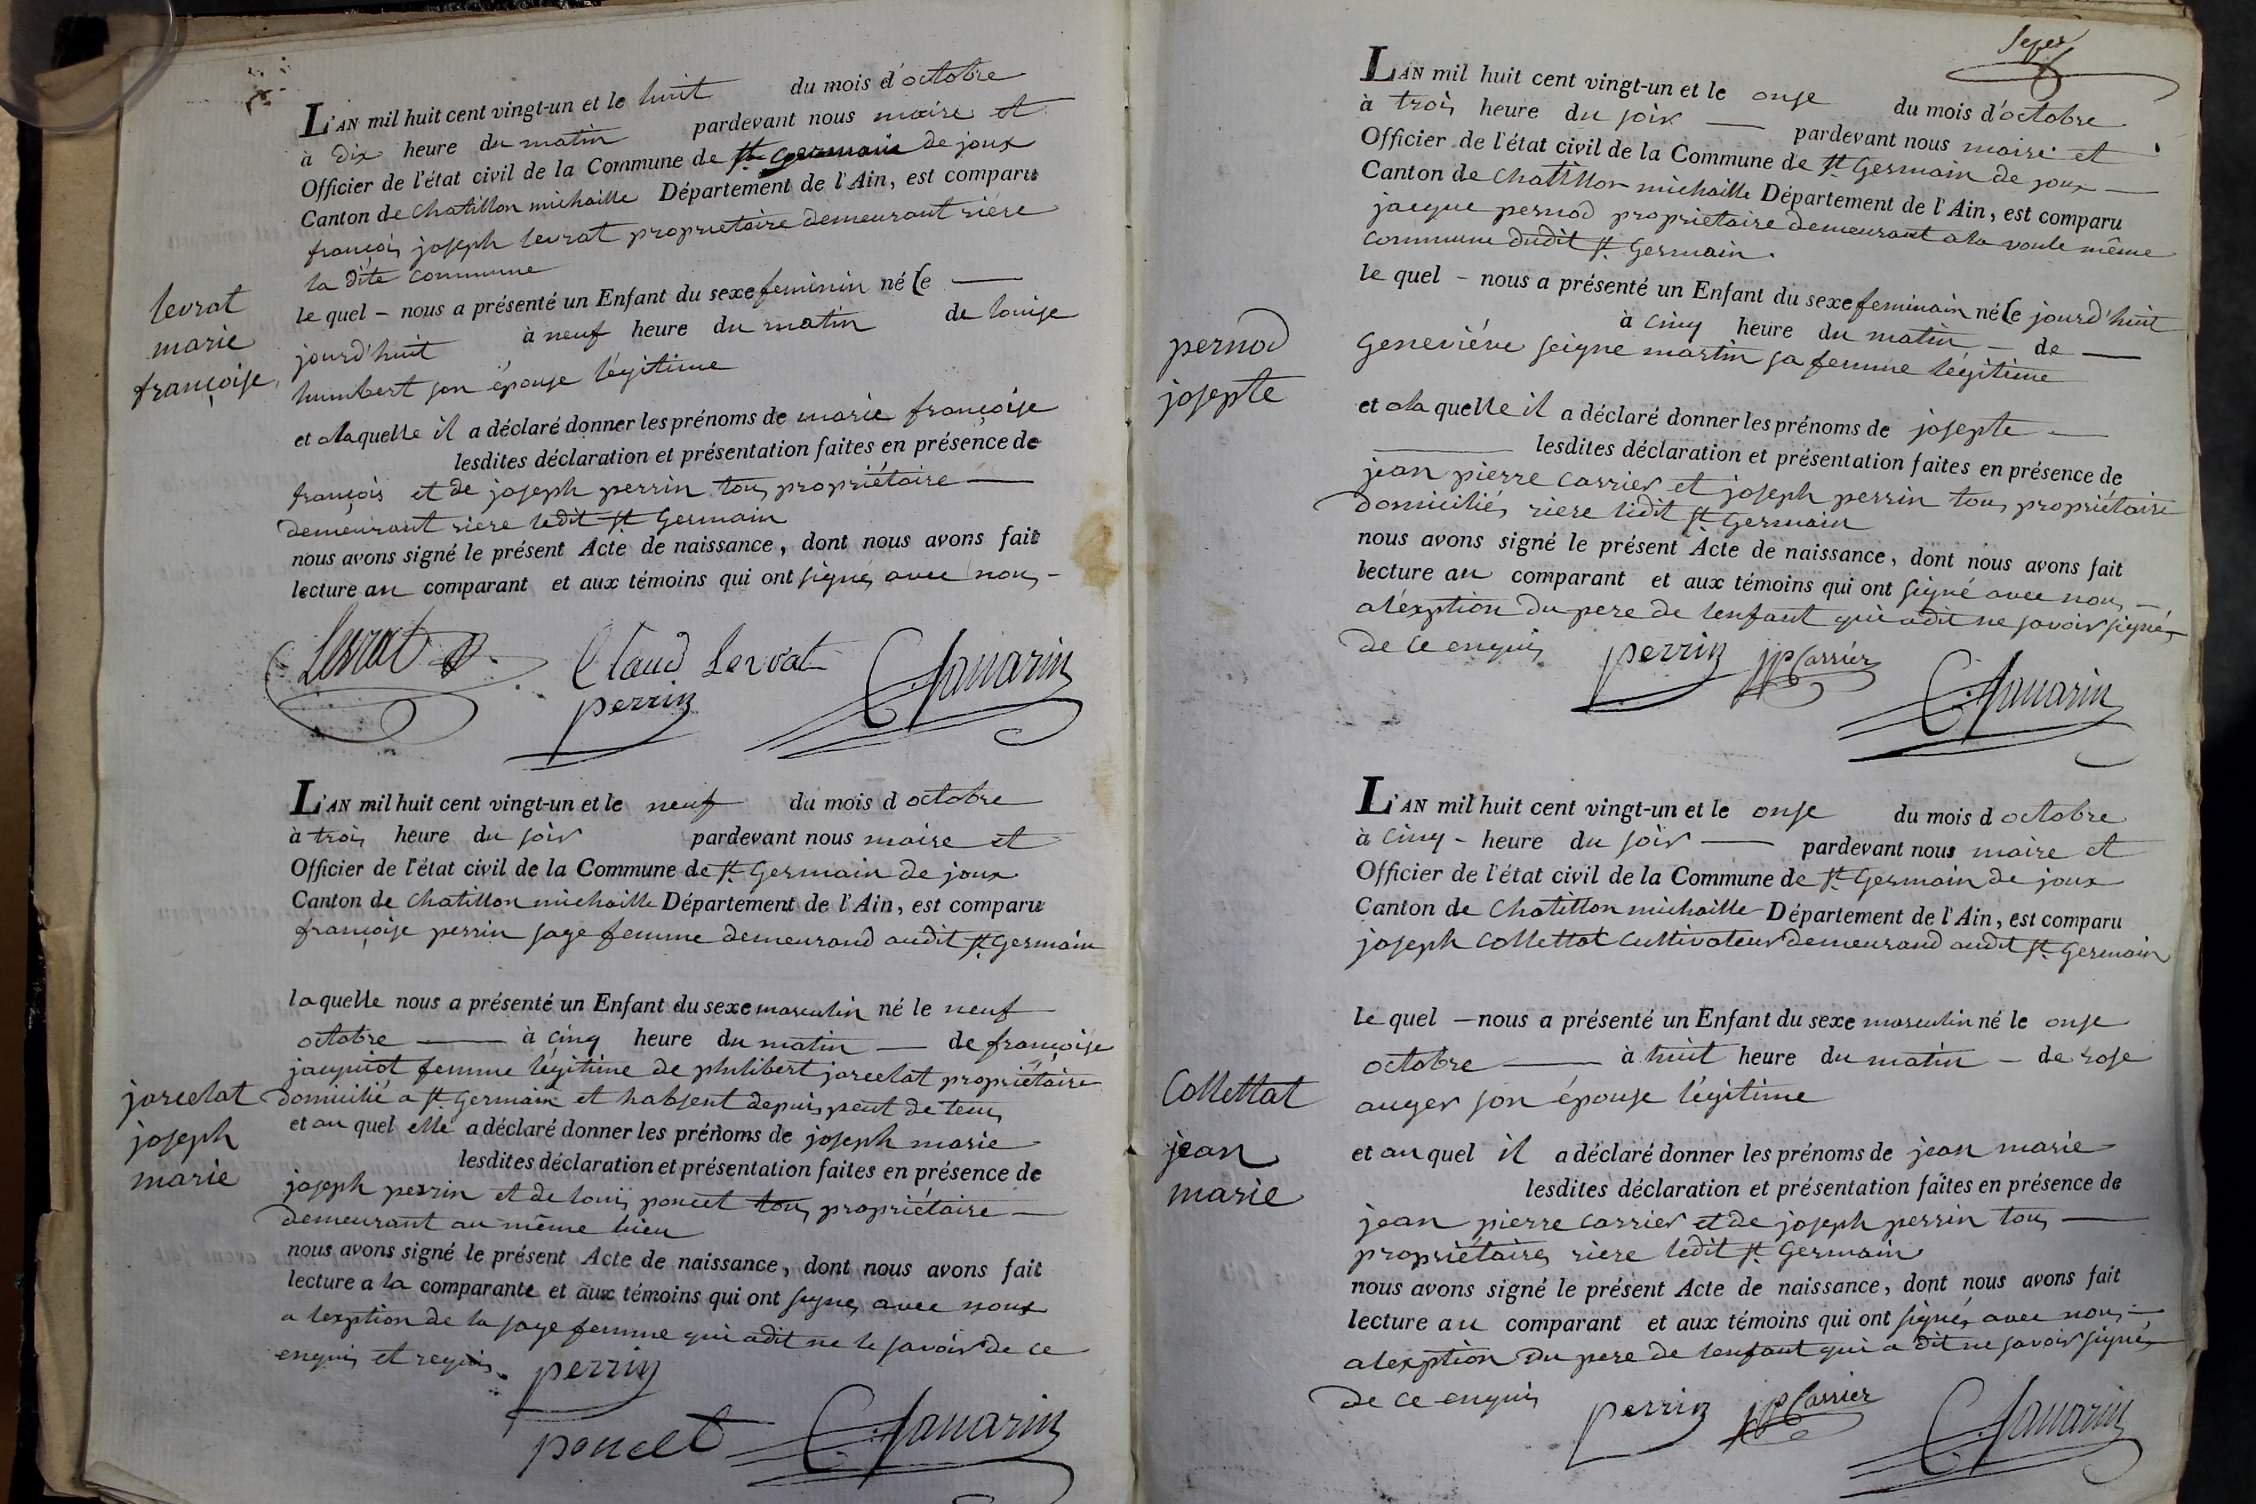 L'AN mil huit cent vingt-un et le huit du mois d'octobre
à dix heure du matin pardevant nous maire et
Officier de l'état civil de la Commune de St Germain de joux
Canton de Chatillon michaille Département de l'Ain, est comparu
françois joseph levrat proprietaire demeurant riére
la dite commune
le quel – nous a présenté un Enfant du sexe feminin né Ce —
jourd'huit à neuf heure du matin de louise
humbert son épouse légitime
levrat
marie
françoise
et a la quelle il a déclaré donner les prénoms de marie françoise
lesdites déclaration et présentation faites en présence de
françois et de joseph perrin tous propriétaire —
demeurant riere ledit St Germain
nous avons signé le présent Acte de naissance, dont nous avons fait
lecture au comparant et aux témoins qui ont signés avec nous –
Levrat Claud Lervat
perrin
L'AN mil huit cent vingt-un et le neuf du mois d octobre
à trois heure du soir pardevant nous maire et
Officier de l'état civil de la Commune de St Germain de joux
Canton de Chatillon michaille Département de l'Ain, est comparu
françoise perrin sage femme demeurand audit St Germain
la quelle nous a présenté un Enfant du sexe masculin né le neuf
octobre — à cinq heure du matin — de françoise
jacquiot femme légitime de philibert jarcelat propriétaire
domicilié a St Germain et habsent depuis peut de tems
jarcelat
joseph
marie
et au quel elle a déclaré donner les prénoms de joseph marie
lesdites déclaration et présentation faites en présence de
joseph perrin et de louis poncet tous propriétaire —
demeurant au même lieu
nous avons signé le présent Acte de naissance, dont nous avons fait
lecture a la comparante et aux témoins qui ont signés avec nous
a lexption de la sage femme qui a dit ne le savoir de ce
enquis et requis perrin
poncet
L'AN mil huit cent vingt-un et le onse du mois d'octobre
à trois heure du soir — pardevant nous maire et
Officier de l'état civil de la Commune de St Germain de joux —
Canton de Chatillon michaille Département de l'Ain, est comparu
jacque pernod proprietaire demeurant a la voute même
commune dudit St Germain.
le quel – nous a présenté un Enfant du sexe feminain né Ce jourd'huit
à cinq heure du matin — de —
Geneviéve seigne martin sa femme légitime
pernod
josepte
et a la quelle il a déclaré donner les prénoms de josepte —
lesdites déclaration et présentation faites en présence de
jean pierre carrier et joseph perrin tous propriétaire
domiciliés riere ledit St Germain
nous avons signé le présent Acte de naissance, dont nous avons fait
lecture au comparant et aux témoins qui ont signé avec nous —
a l'éxption du pere de lenfant qui a dit ne savoir signés
de ce enquis perrin JP Carrier
L'AN mil huit cent vingt-un et le onse du mois d octobre
à cinq – heure du soir — pardevant nous maire et
Officier de l'état civil de la Commune de St Germain de joux
Canton de Chatillon michaille Département de l'Ain, est comparu
joseph Collettat Cultivateur demeurand audit St Germain
le quel — nous a présenté un Enfant du sexe masculin né le onse
octobre — à huit heure du matin – de rose
auger son épouse légitime
Collettat
jean
marie
et au quel il a déclaré donner les prénoms de jean marie
lesdites déclaration et présentation faites en présence de
jean pierre carrier et de joseph perrin tous —
propriétaires riere ledit St Germain
nous avons signé le présent Acte de naissance, dont nous avons fait
lecture au comparant et aux témoins qui ont signés avec nous —
a lexption du pere de lenfant qui a dit ne savoir signés
de ce enquis perrin JP Carrier